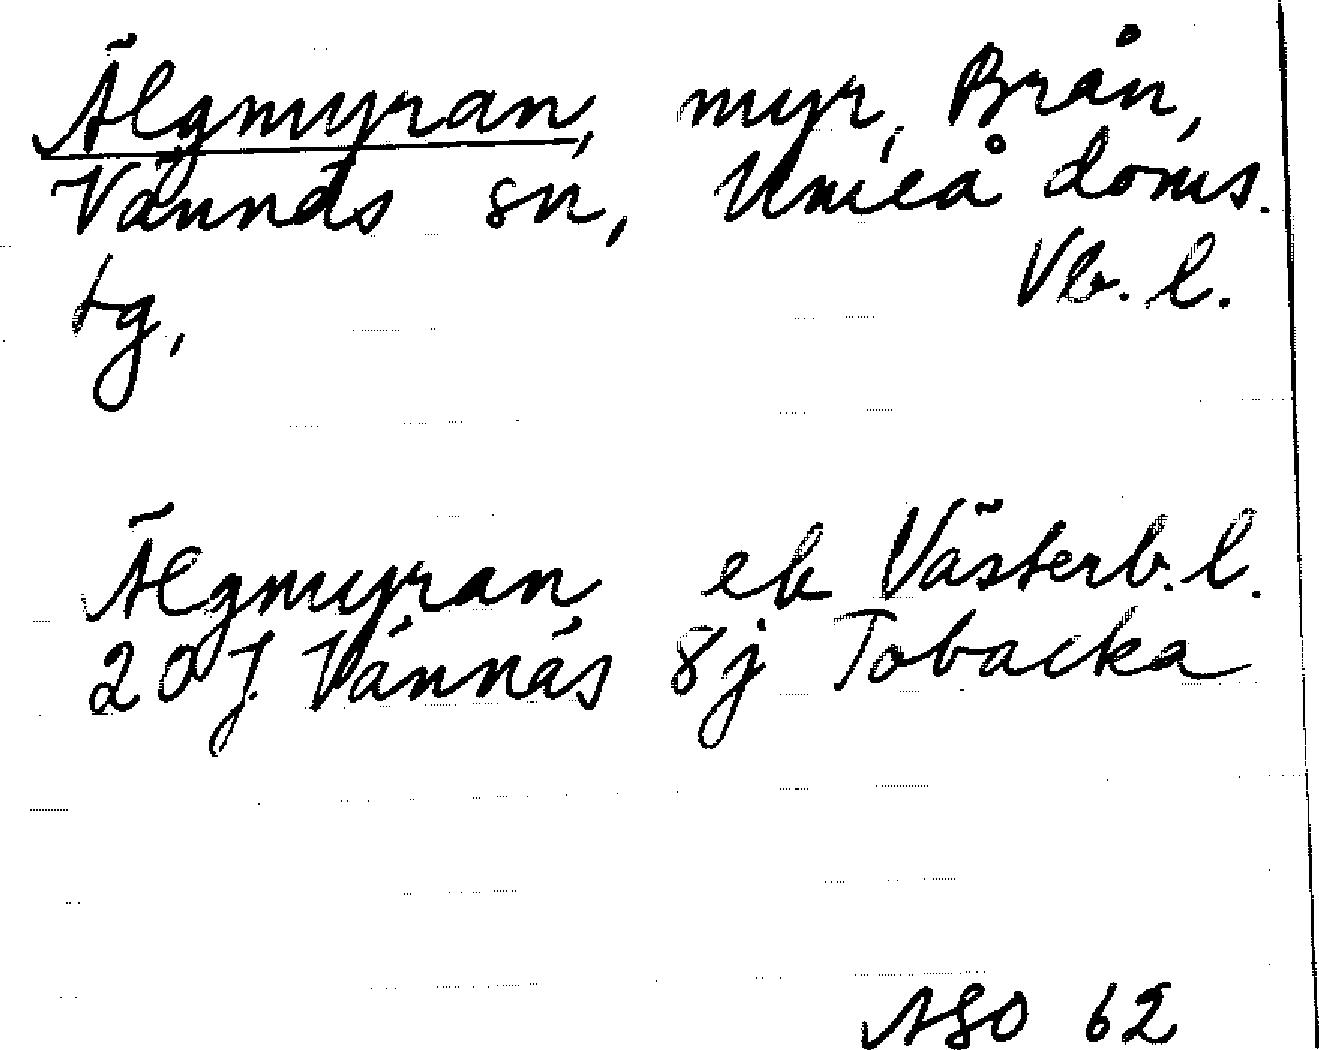 Älgmyran, myr, Brån,
Vännäs sn, Umeå doms.
tg, Vb. l.
Älgmyran ek Västerb. l.
20 J Vännäs 8j Tobacka
ASO 62